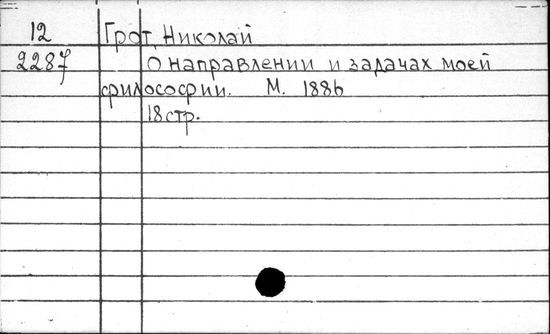 12 Грот, Николай
2287 О направлении и задачах моей
философии. М. 1886
18 стр.